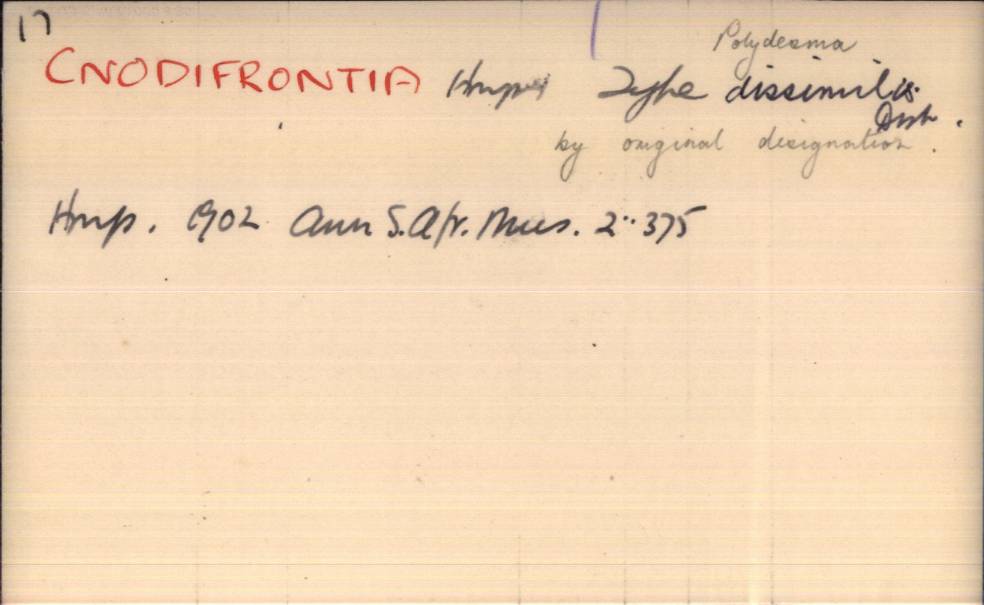 17
Polydesma
CNODIFRONTIA Hmps Type dissimilis
Dist.
by original designation.
Hmps. 1902 Ann S. Afr. Mus. 2: 375